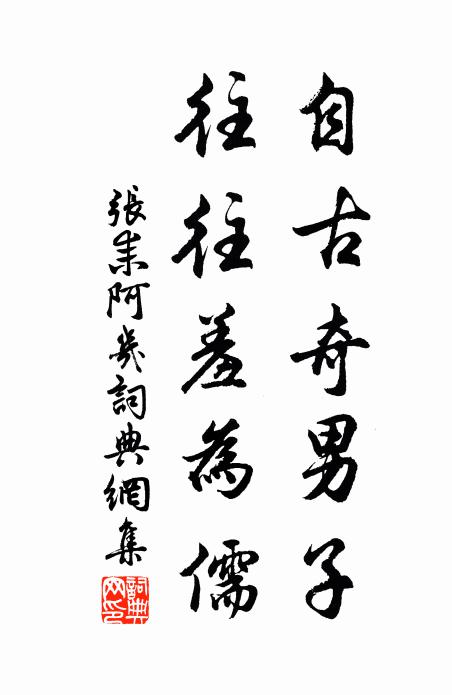 自古奇男子
往往羞為儒
張耒阿幾詞典網集
詞典網印